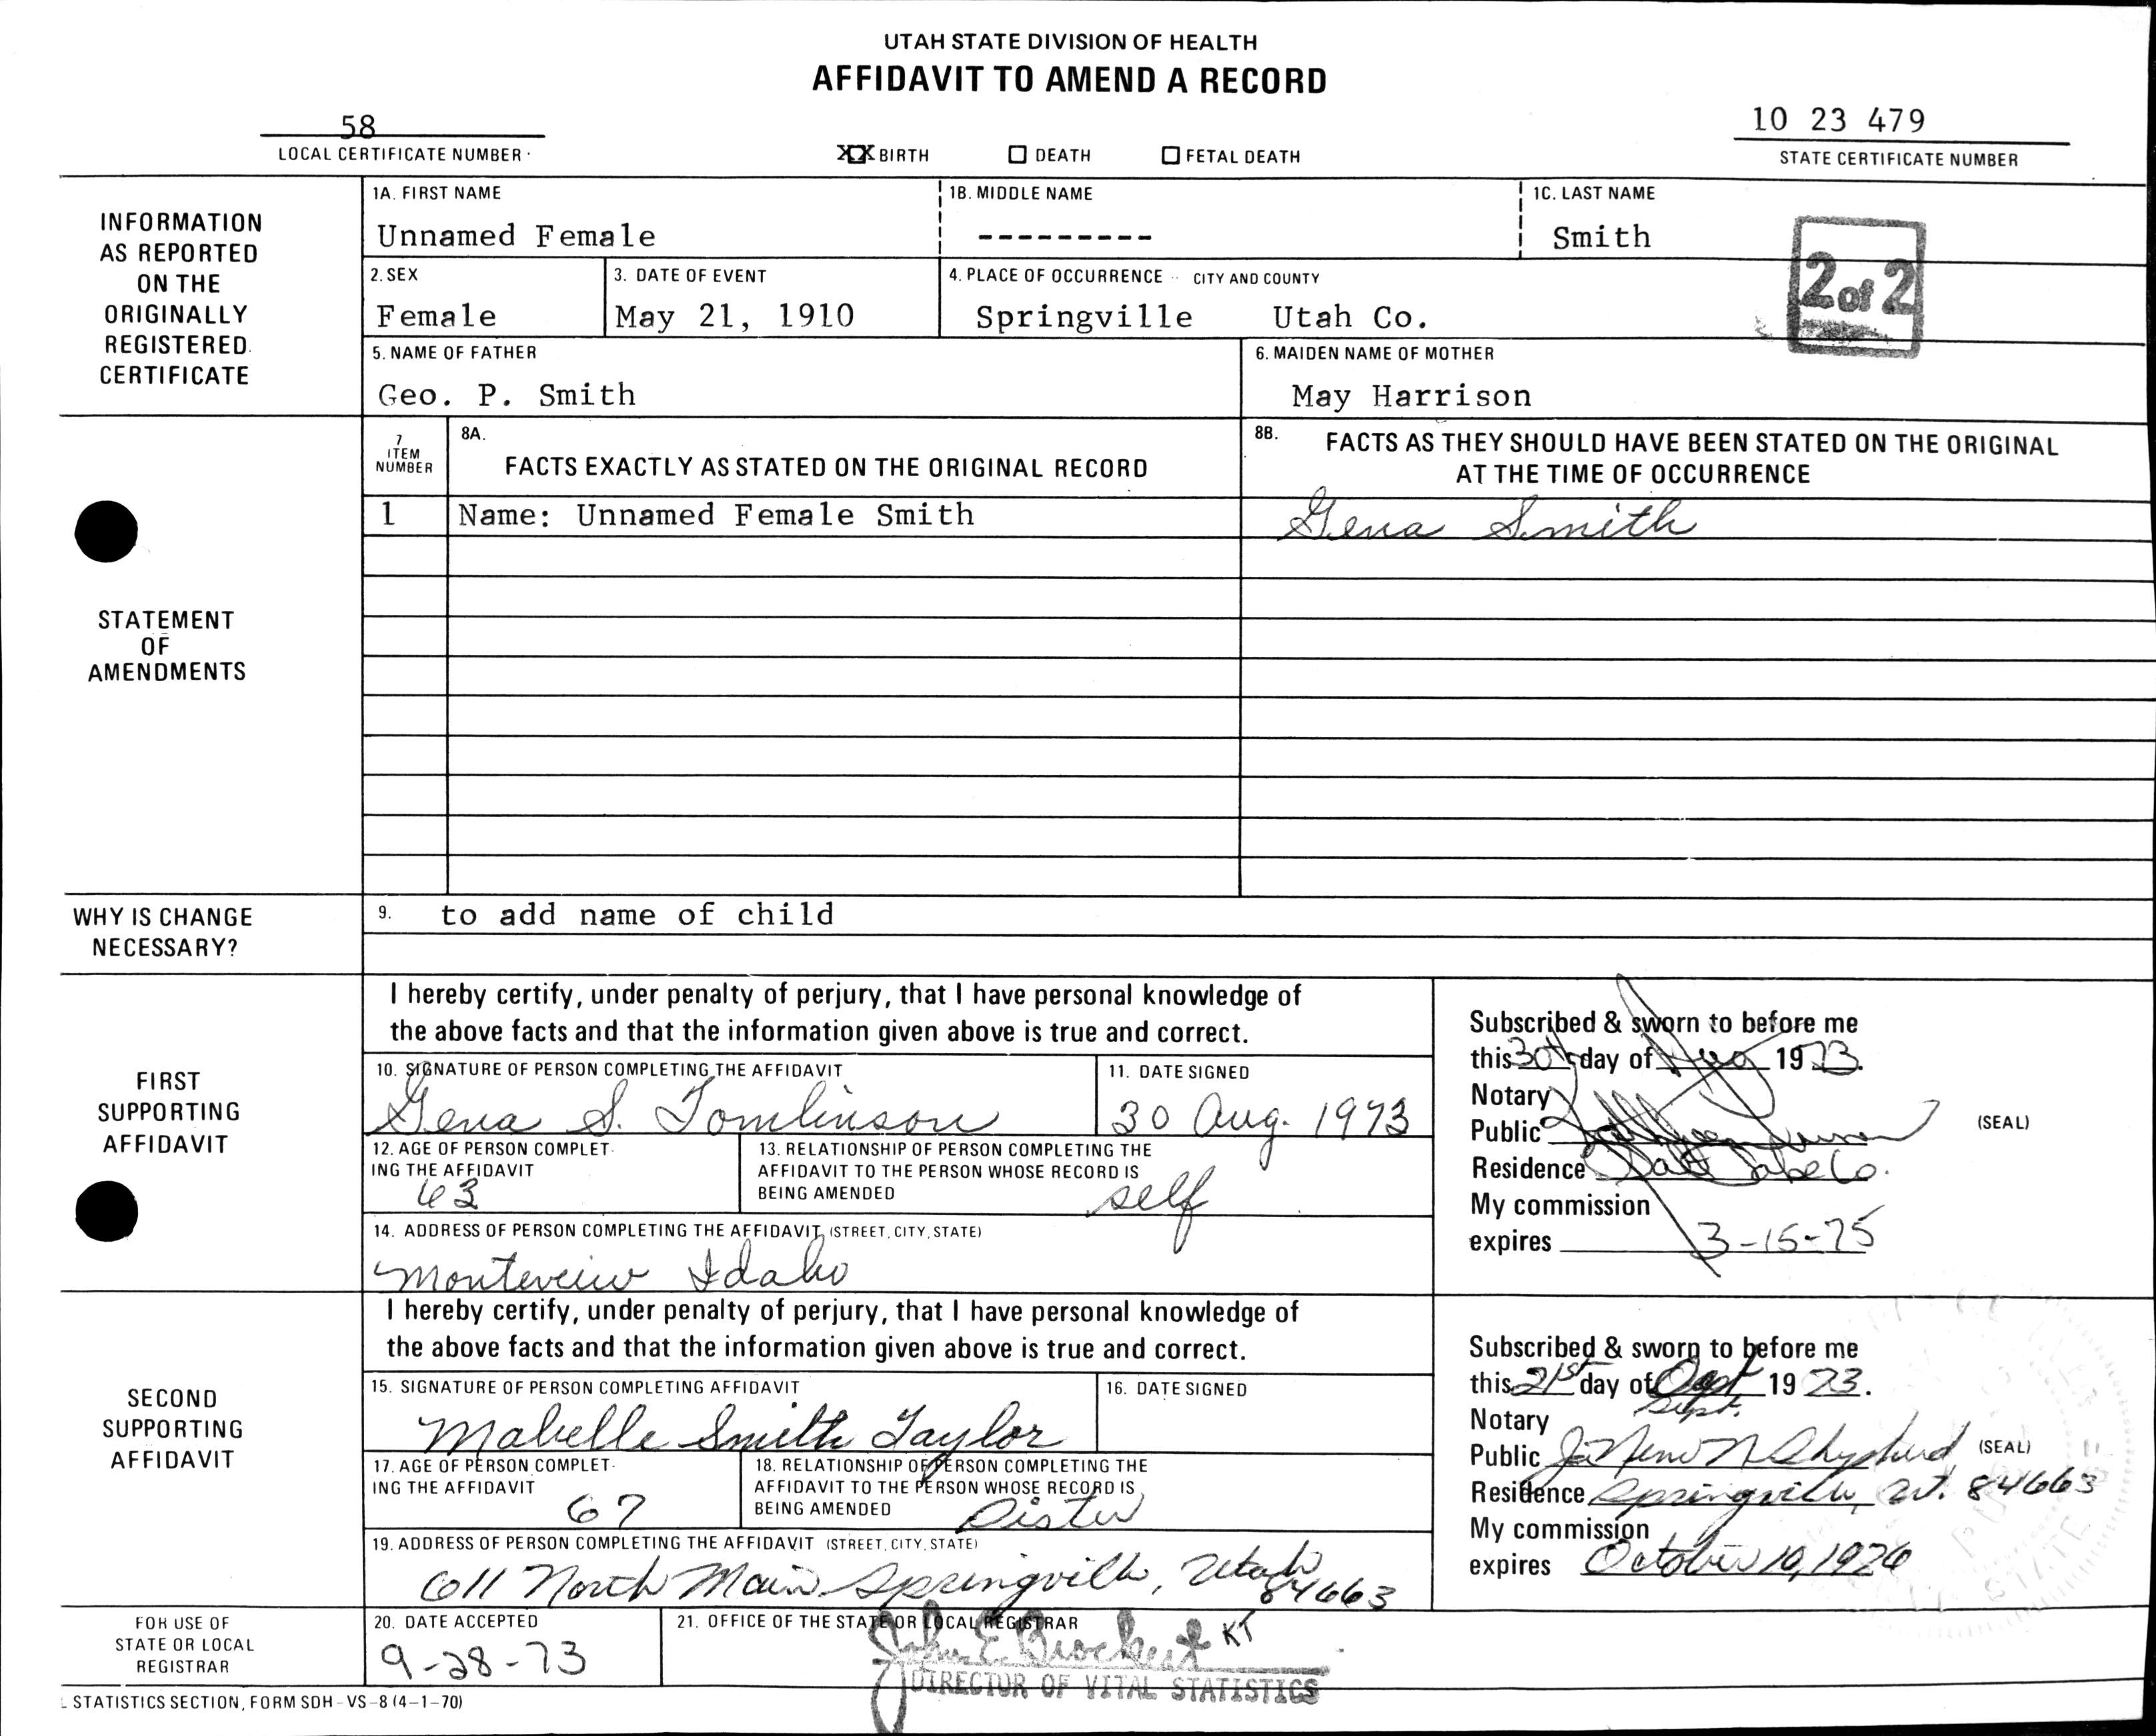 UTAH STATE DIVISION OF HEALTH
AFFIDAVIT TO AMEND A RECORD
58
LOCAL CERTIFICATE NUMBER
XX BIRTH DEATH FETAL DEATH
10 23 479
STATE CERTIFICATE NUMBER
INFORMATION AS REPORTED ON THE ORIGINALLY REGISTERED CERTIFICATE
1A. FIRST NAME 1B. MIDDLE NAME 1C. LAST NAME
Unnamed Female --------- Smith
2 of 2
2. SEX 3. DATE OF EVENT 4. PLACE OF OCCURRENCE CITY AND COUNTY
Female May 21, 1910 Springville Utah Co.
5. NAME OF FATHER 6. MAIDEN NAME OF MOTHER
Geo. P. Smith May Harrison
STATEMENT OF AMENDMENTS
7 ITEM NUMBER
8A. FACTS EXACTLY AS STATED ON THE ORIGINAL RECORD
8B. FACTS AS THEY SHOULD HAVE BEEN STATED ON THE ORIGINAL
AT THE TIME OF OCCURRENCE
1 Name: Unnamed Female Smith Gena Smith
WHY IS CHANGE NECESSARY?
9. to add name of child
FIRST SUPPORTING AFFIDAVIT
I hereby certify, under penalty of perjury, that I have personal knowledge of
the above facts and that the information given above is true and correct.
10. SIGNATURE OF PERSON COMPLETING THE AFFIDAVIT 11. DATE SIGNED
Gena S. Tomlinson 30 Aug. 1973
12. AGE OF PERSON COMPLET-
ING THE AFFIDAVIT
63
13. RELATIONSHIP OF PERSON COMPLETING THE
AFFIDAVIT TO THE PERSON WHOSE RECORD IS
BEING AMENDED
self
14. ADDRESS OF PERSON COMPLETING THE AFFIDAVIT (STREET, CITY, STATE)
Monteveiw Idaho
Subscribed & sworn to before me
this 30th day of Aug 1973.
Notary
Public (SEAL)
Residence Salt Lake Co.
My commission
expires 3-15-75
SECOND SUPPORTING AFFIDAVIT
I hereby certify, under penalty of perjury, that I have personal knowledge of
the above facts and that the information given above is true and correct.
15. SIGNATURE OF PERSON COMPLETING AFFIDAVIT 16. DATE SIGNED
Mabelle Smith Taylor
17. AGE OF PERSON COMPLET-
ING THE AFFIDAVIT
67
18. RELATIONSHIP OF PERSON COMPLETING THE
AFFIDAVIT TO THE PERSON WHOSE RECORD IS
BEING AMENDED
Sister
19. ADDRESS OF PERSON COMPLETING THE AFFIDAVIT (STREET, CITY, STATE)
611 North Main Springville, Utah
84663
Subscribed & sworn to before me
this 21st day of 1973.
Sept.
Notary
Public (SEAL)
Residence Springville, Ut. 84663
My commission
expires October 10, 1976
FOR USE OF STATE OR LOCAL REGISTRAR
20. DATE ACCEPTED 21. OFFICE OF THE STATE OR LOCAL REGISTRAR
9-28-73 John E. Brockert KT
DIRECTOR OF VITAL STATISTICS
STATISTICS SECTION, FORM SDH-VS-8 (4-1-70)